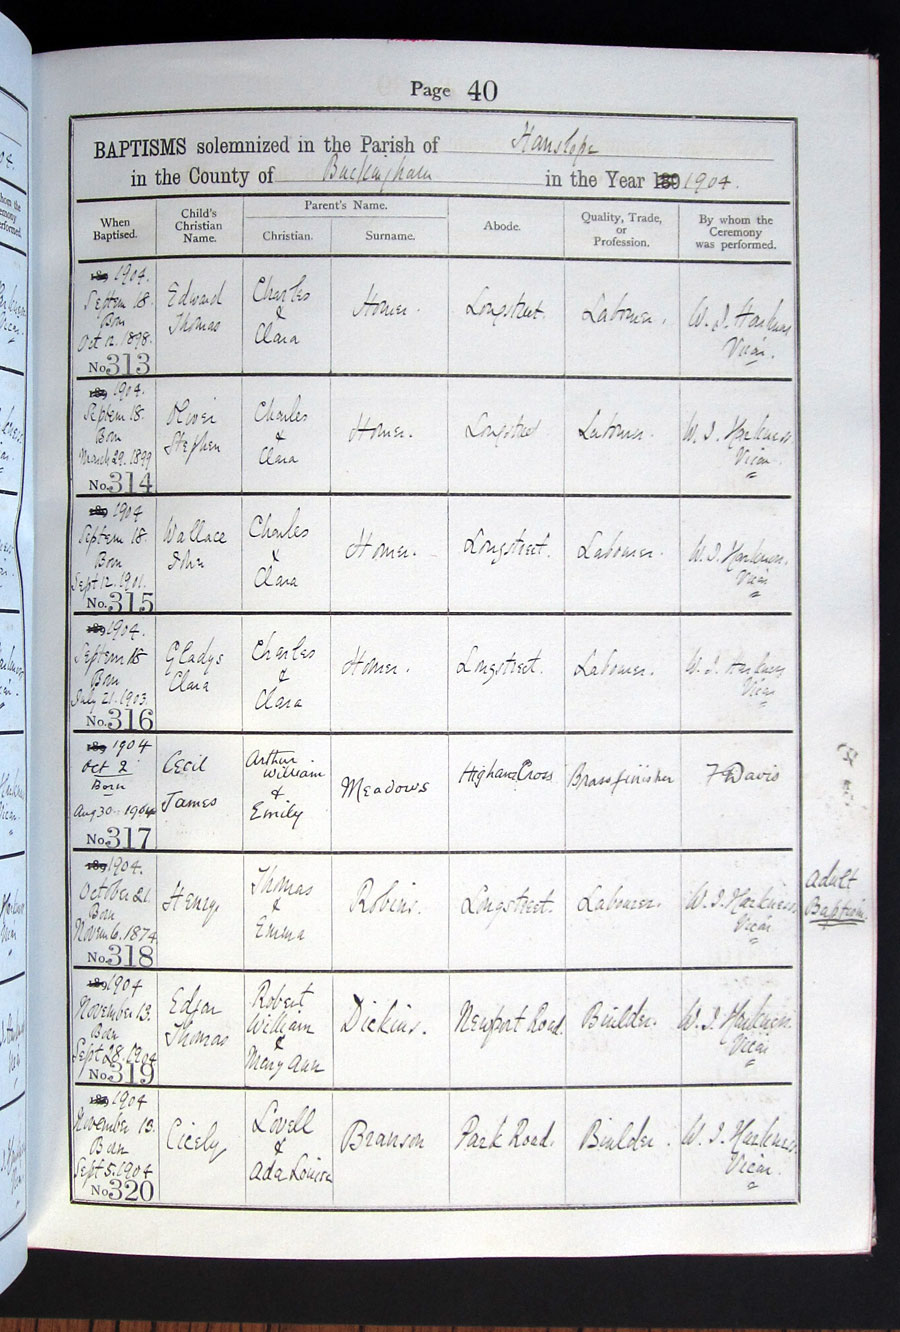 Page 40
BAPTISMS solemnized in the Parish of Hanslope
in the County of Buckingham in the Year 189 1904.
When Baptised.
Child's Christian Name.
Parent's Name.
Christian.
Surname.
Abode.
Quality, Trade, or Profession.
By whom the Ceremony was performed.
189 1904.
Septem 18.
Born
Oct 12. 1898.
No. 313
Edward
Thomas
Charles
&
Clara
Homer.
Longstreet.
Labourer.
W. J. Harkness
Vicar.
189 1904.
Septem 18.
Born
March 29. 1899
No. 314
Oliver
Stephen
Charles
&
Clara
Homer.
Longstreet
Labourer.
W. J. Harkness
Vicar.
189 1904
Septem 18
Born
Sept 12. 1901.
No. 315
Wallace
John
Charles
&
Clara
Homer.
Longstreet.
Labourer.
W. J. Harkness.
Vicar
189 1904.
Septem 18
Born
July 21. 1903.
No. 316
Gladys
Clara
Charles
&
Clara
Homer.
Longstreet.
Labourer.
W. J. Harkness
Vicar
189 1904
Oct 2
Born
Aug 30 1904
No. 317
Cecil
James
Arthur
William
&
Emily
Meadows
Higham Cross
Brassfinisher
F Davis
189 1904.
October 21.
Born
Novem 6. 1874.
No. 318
Henry
Thomas
&
Emma
Robins.
Longstreet.
Labourer.
W. J. Harkness.
Vicar
Adult
Baptism.
189 1904
November 13.
Born
Sept 28. 1904
No. 319
Edgar
Thomas
Robert
William
&
Mary Ann
Dickins.
Newport Road.
Builder.
W. J. Harkness.
Vicar
189 1904
November 13.
Born
Sept 5. 1904
No. 320
Cicely
Lovell
&
Ada Louisa
Branson
Park Road.
Builder.
W. J. Harkness.
Vicar.